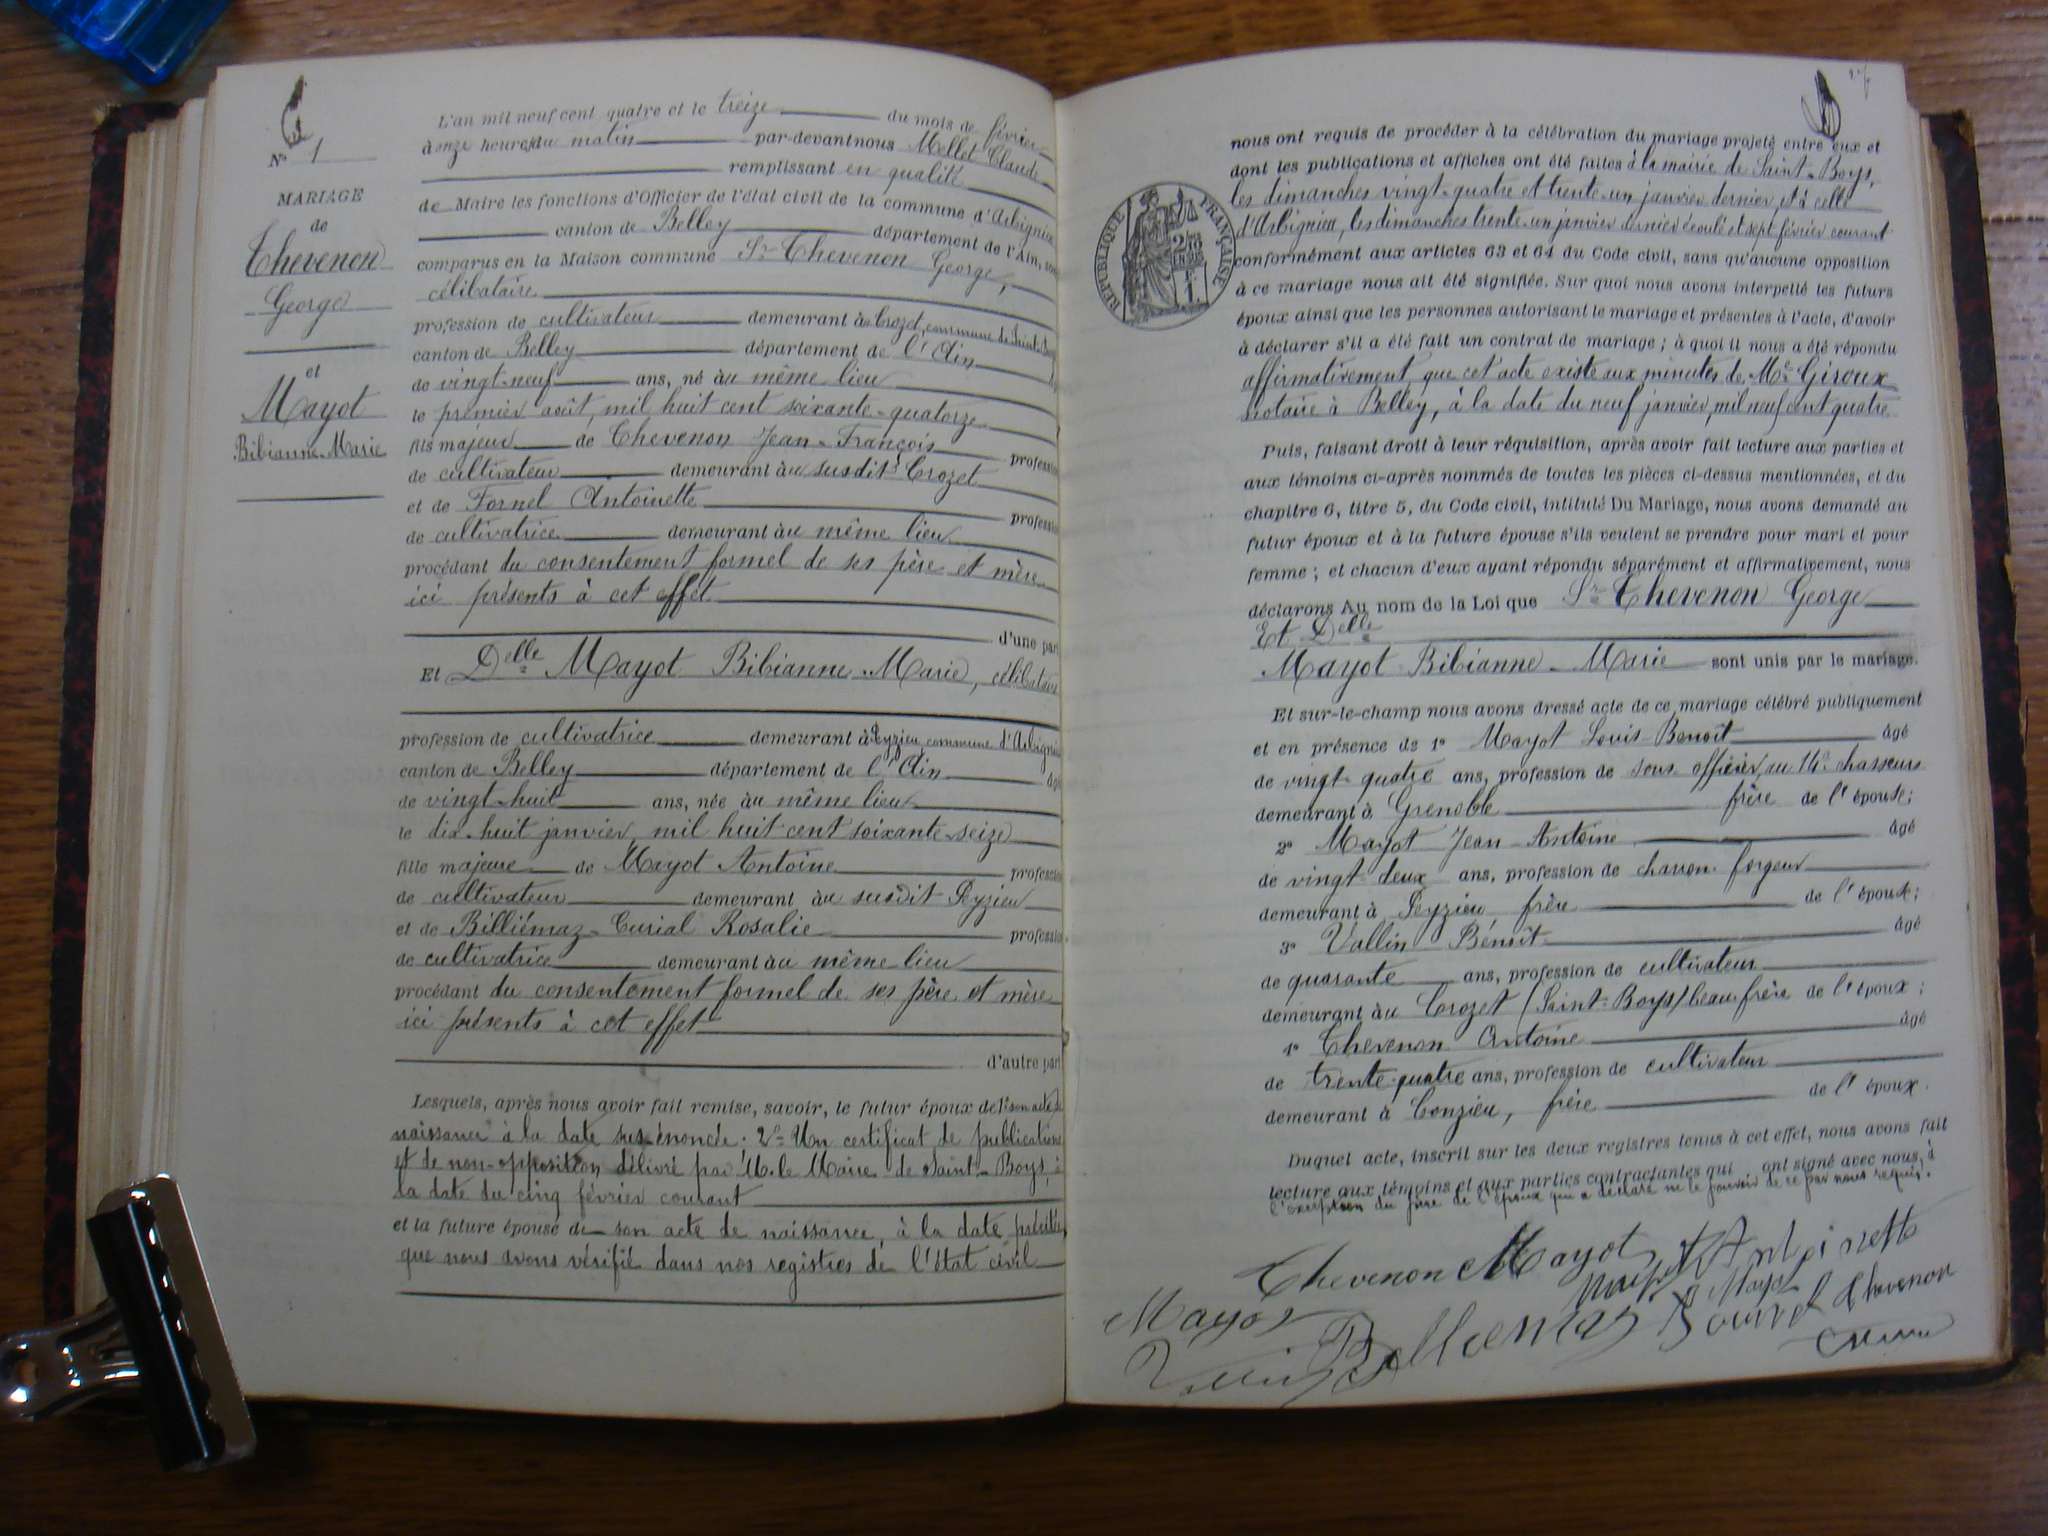 N° 1
MARIAGE
de
Thevenon
George
et
Mayot
Bibianne-Marie
L'an mil neuf cent quatre et le treize du mois de février
à onze heures du matin par-devant nous Mellet Claude
remplissant en qualité
de Maire les fonctions d'Officier de l'état civil de la commune d'Arbignieu
canton de Belley département de l'Ain, sont
comparus en la Maison commune Sr Thevenon George,
célibataire
profession de cultivateur demeurant à Crozet, commune de Saint-Boys
canton de Belley département de l'Ain
de vingt-neuf ans, né au même lieu
le premier août, mil huit cent soixante-quatorze
fils majeur de Thevenon Jean-François profession
de cultivateur demeurant au susdit Crozet
et de Fornel Antoinette profession
de cultivatrice demeurant au même lieu
procédant du consentement formel de ses père et mère
ici présents à cet effet
d'une part
Et Delle Mayot Bibianne-Marie, célibataire
profession de cultivatrice demeurant à Peyzieu commune d'Arbignieu
canton de Belley département de l'Ain âgée
de vingt-huit ans, née au même lieu
le dix-huit janvier, mil huit cent soixante-seize
fille majeure de Mayot Antoine profession
de cultivateur demeurant au susdit Peyzieu
et de Billiémaz-Curial Rosalie profession
de cultivatrice demeurant au même lieu
procédant du consentement formel de ses père et mère
ici présents à cet effet
d'autre part
Lesquels, après nous avoir fait remise, savoir, le futur époux de 1° son acte de
naissance à la date sus-énoncée. 2° Un certificat de publications
et de non-opposition délivré par M. le Maire de Saint-Boys, à
la date du cinq février courant
et la future épouse de son acte de naissance, à la date précitée,
que nous avons vérifié dans nos registres de l'état civil
RÉPUBLIQUE FRANÇAISE
nous ont requis de procéder à la célébration du mariage projeté entre eux et
dont les publications et affiches ont été faites à la mairie de Saint-Boys,
les dimanches vingt-quatre et trente-un janvier dernier, et à celle
d'Arbignieu, les dimanches trente-un janvier dernier écoulé et sept février courant
conformément aux articles 63 et 64 du Code civil, sans qu'aucune opposition
à ce mariage nous ait été signifiée. Sur quoi nous avons interpellé les futurs
époux ainsi que les personnes autorisant le mariage et présentes à l'acte, d'avoir
à déclarer s'il a été fait un contrat de mariage ; à quoi il nous a été répondu
affirmativement que cet acte existe aux minutes de Me Giroux
notaire à Belley, à la date du neuf janvier, mil neuf cent quatre
Puis, faisant droit à leur réquisition, après avoir fait lecture aux parties et
aux témoins ci-après nommés de toutes les pièces ci-dessus mentionnées, et du
chapitre 6, titre 5, du Code civil, intitulé Du Mariage, nous avons demandé au
futur époux et à la future épouse s'ils veulent se prendre pour mari et pour
femme ; et chacun d'eux ayant répondu séparément et affirmativement, nous
déclarons Au nom de la Loi que Sr Thevenon George
Et Delle
Mayot Bibianne-Marie sont unis par le mariage.
Et sur-le-champ nous avons dressé acte de ce mariage célébré publiquement
et en présence de 1° Mayot Louis Benoît âgé
de vingt-quatre ans, profession de sous officier, au 14e chasseurs
demeurant à Grenoble frère de l'épouse;
2° Mayot Jean-Antoine âgé
de vingt-deux ans, profession de charron-forgeur
demeurant à Peyzieu, frère de l'épouse;
3° Vallin Benoît âgé
de quarante ans, profession de cultivateur
demeurant au Crozet (Saint-Boys) beau-frère de l'époux;
4° Thevenon Antoine âgé
de trente-quatre ans, profession de cultivateur
demeurant à Conzieu, frère de l'époux.
Duquel acte, inscrit sur les deux registres tenus à cet effet, nous avons fait
lecture aux témoins et aux parties contractantes qui ont signé avec nous, à
l'exception du père de l'époux qui a déclaré ne le pouvoir de ce par nous requis.
Thevenon Mayot Antoinette
Mayot
Mayot Thevenon